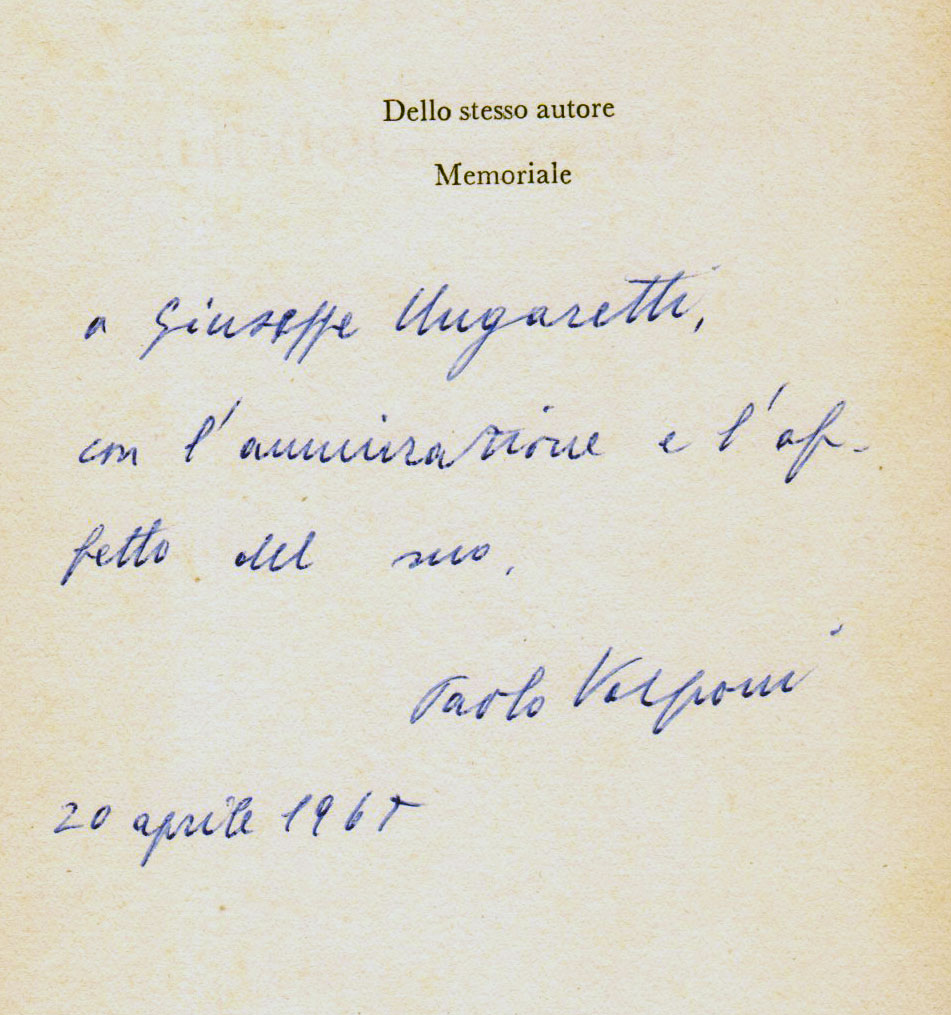 Dello stesso autore
Memoriale
a Giuseppe Ungaretti,
con l'ammirazione e l'af-
fetto del suo,
Paolo Volponi
20 aprile 1965